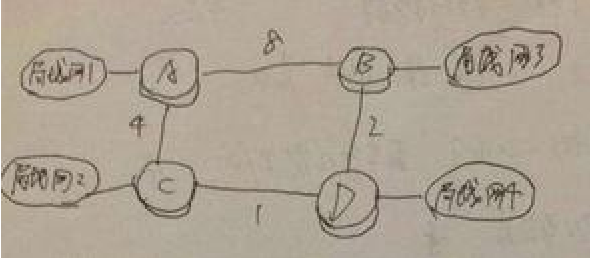 8
局域网1
A
B
局域网3
4
2
局域网2
C
D
局域网4
1